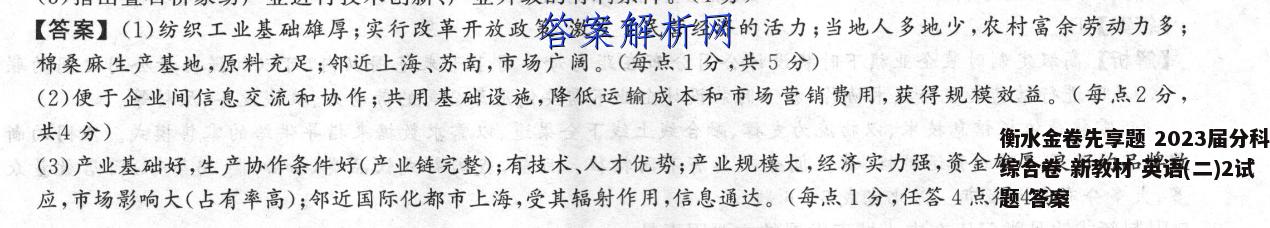 【答案】(1)纺织工业基础雄厚;实行改革开放政策,激发了民营经济的活力;当地人多地少,农村富余劳动力多;
答案解析网
棉桑麻生产基地,原料充足;邻近上海、苏南,市场广阔。(每点1分,共5分)
(2)便于企业间信息交流和协作;共用基础设施,降低运输成本和市场营销费用,获得规模效益。(每点2分,
共4分)
(3)产业基础好,生产协作条件好(产业链完整);有技术、人才优势;产业规模大,经济实力强,资金雄厚
应,市场影响大(占有率高);邻近国际化都市上海,受其辐射作用,信息通达。(每点1分,任答4点得4分)
衡水金卷先享题 2023届分科
综合卷 新教材 英语(二)2试
题 答案